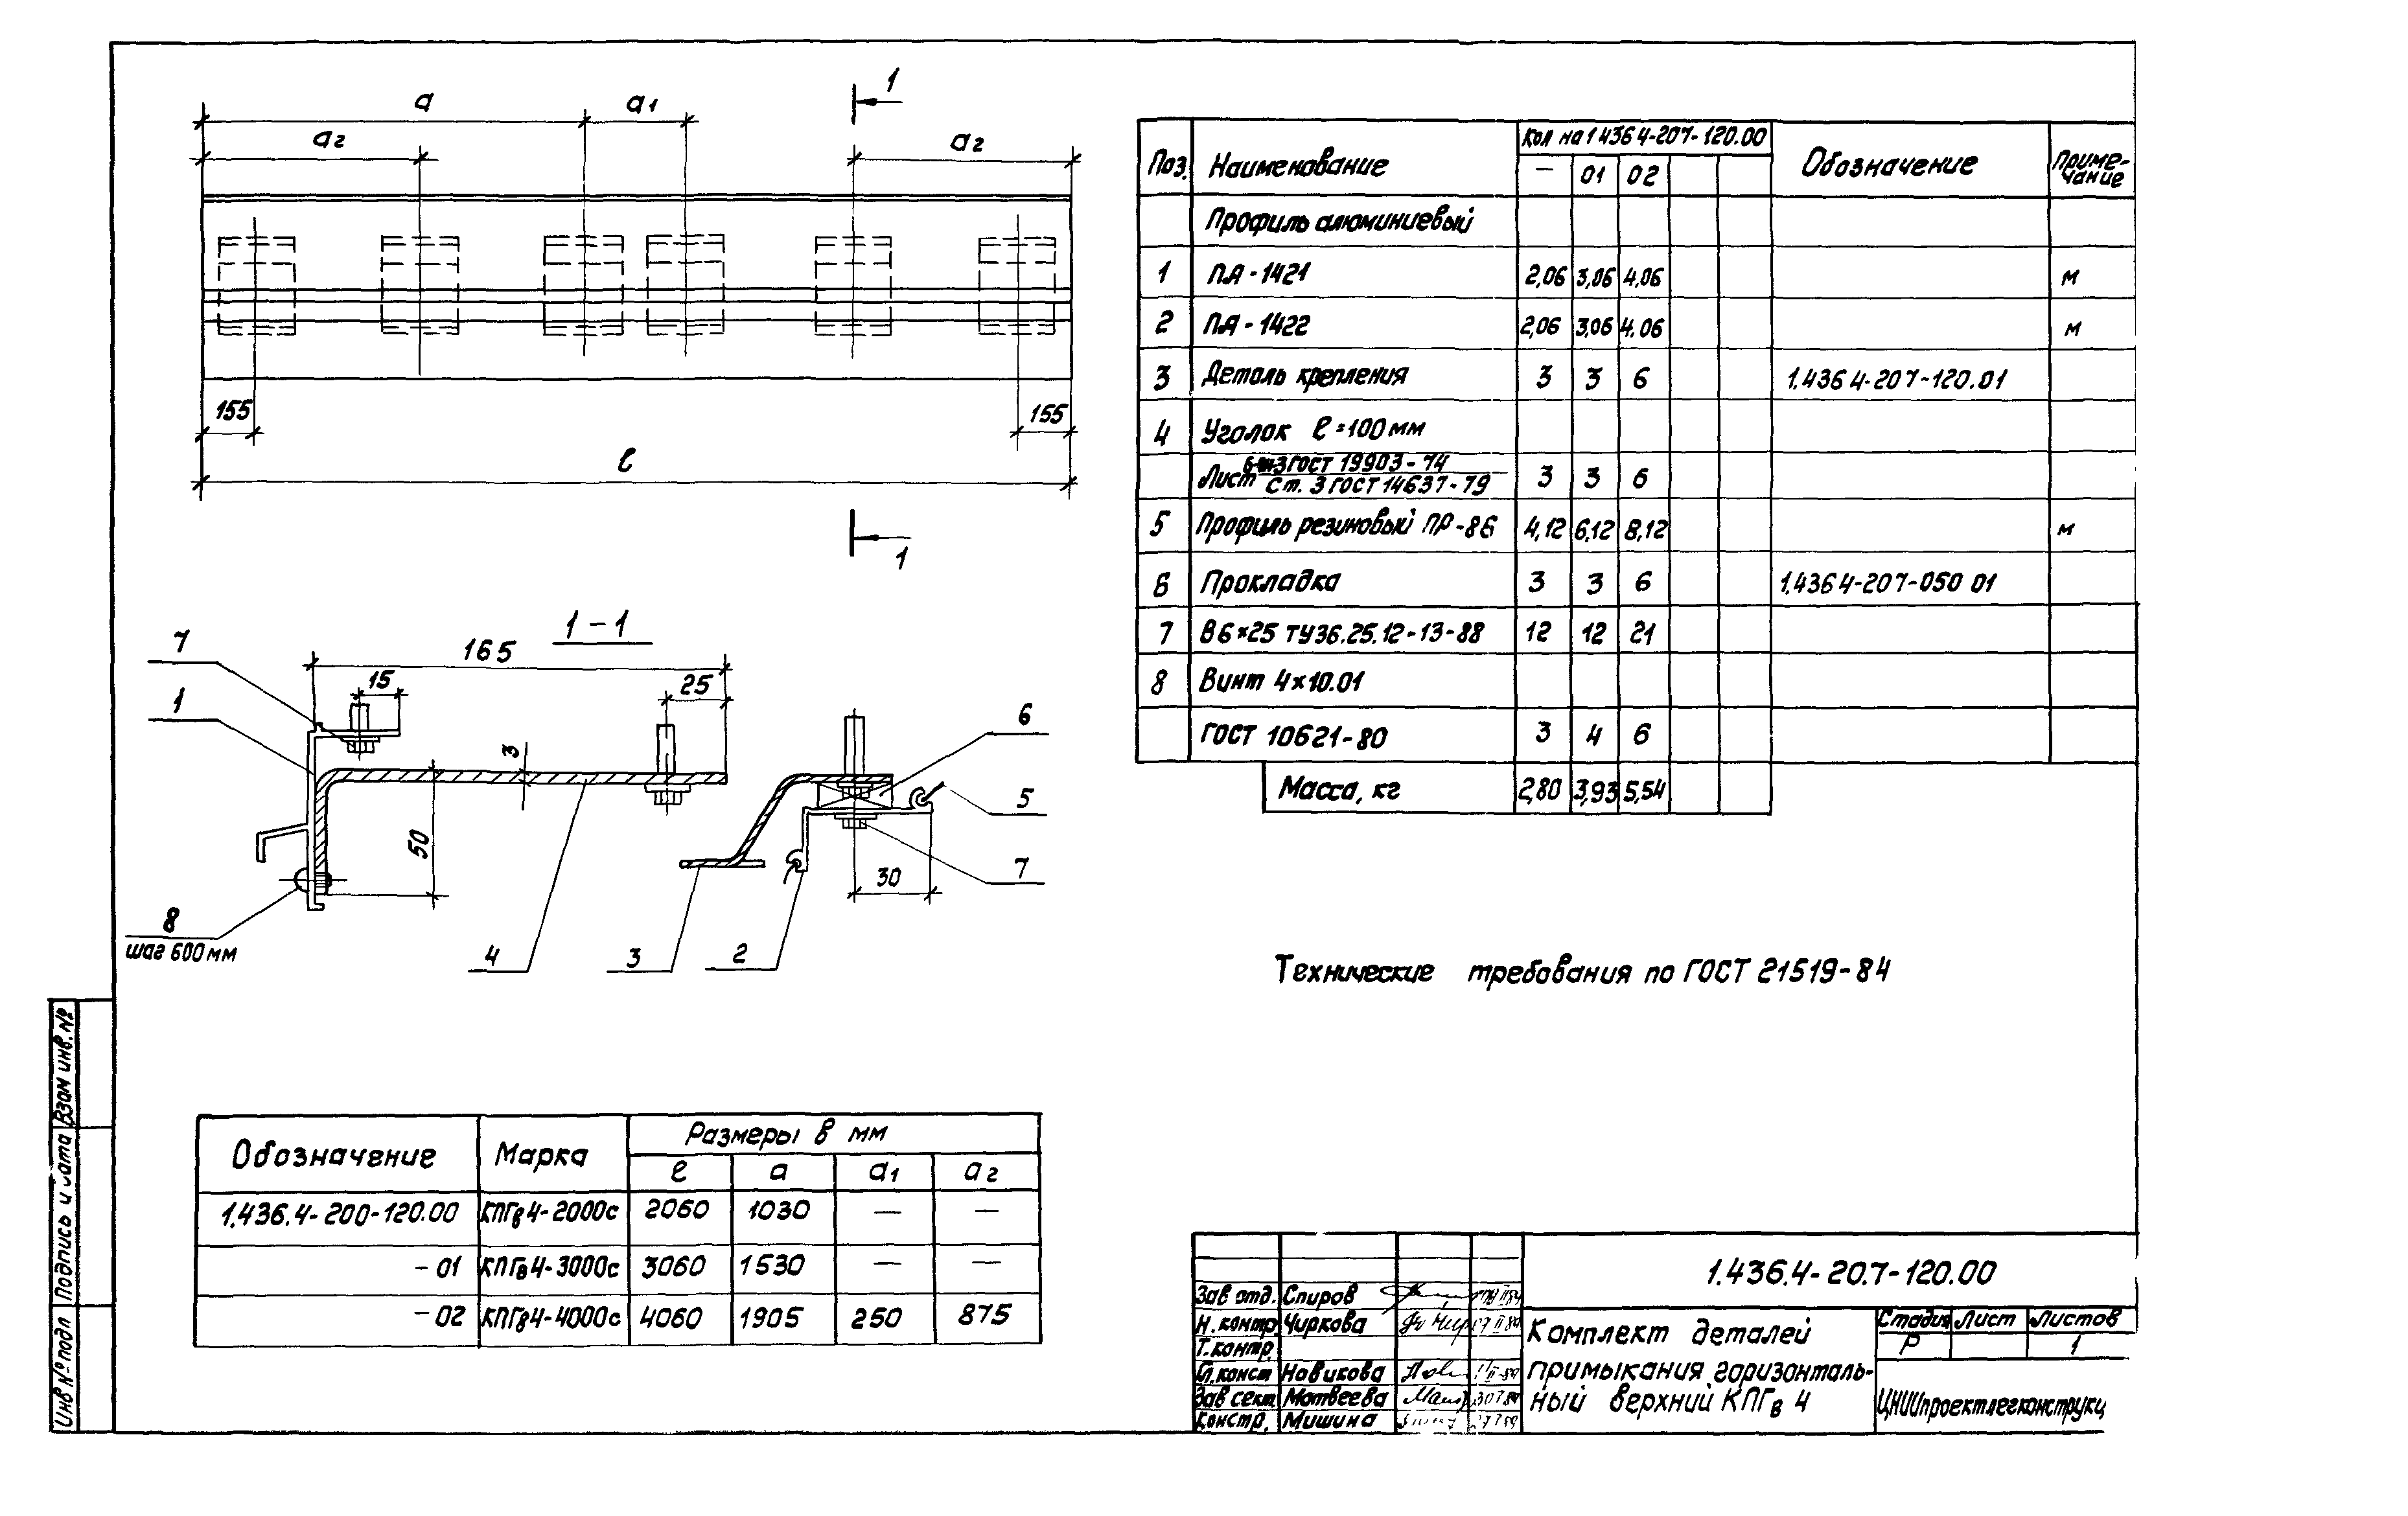 1
а
а1
а2
а2
155
155
ℓ
1
1-1
165
7
15
25
1
3
6
5
50
7
30
8
шаг 600 мм
4
3
2
Поз. Наименование Кол на 1 436 4-207-120.00 Обозначение Приме-
чание
— 01 02
Профиль алюминиевый
1 ПА-1421 2,06 3,06 4,06 м
2 ПА-1422 2,06 3,06 4.06 м
3 Деталь крепления 3 3 6 1.436 4-207-120.01
4 Уголок ℓ=100мм
ГОСТ 19903-74
Лист Ст. 3 ГОСТ 14637-79 3 3 6
5 Профиль резиновый ПР-86 4,12 6,12 8,12 м
6 Прокладка 3 3 6 1.436 4-207-050 01
7 В6×25 ТУ36.25.12-13-88 12 12 21
8 Винт 4×10.01
ГОСТ 10621-80 3 4 6
Масса, кг 2,80 3,93 5,54
Технические требования по ГОСТ 21519-84
Обозначение Марка Размеры в мм
ℓ а а1 а2
1.436.4-200-120.00 КПГв4-2000с 2060 1030 — —
-01 КПГв4-3000с 3060 1530 — —
-02 КПГв4-4000с 4060 1905 250 875
Взам инв. №
Подпись и дата
Инв № подл
1.436.4-20.7-120.00
Зав отд. Спиров
Н.контр. Чиркова
Т.контр.
Гл.конст Новикова
Зав сект. Матвеева
Констр. Мишина
Комплект деталей
примыкания горизонталь-
ный верхний КПГв 4
Стадия Лист Листов
Р 1
ЦНИИпроектлегконструкц